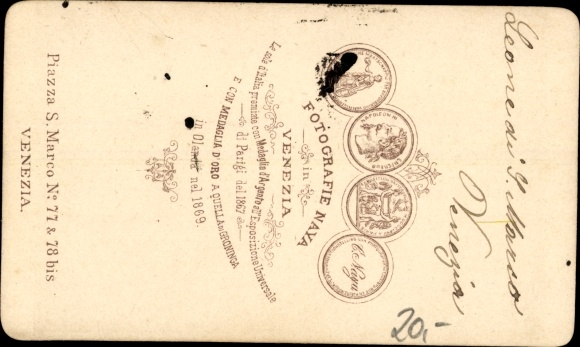 Leone di S. Marco
Venezia
NAPOLEON III
EMPEREUR
C. Naya
FOTOGRAFIE NAYA
in
VENEZIA
Le sole d'Italia premiate con Medaglia d'Argento all'Esposizione Universale
di Parigi del 1867
E CON MEDAGLIA D'ORO A QUELLA DI GRONINGA
in Olanda nel 1869.
Piazza S. Marco Nº 77 & 78 bis
VENEZIA.
20,-